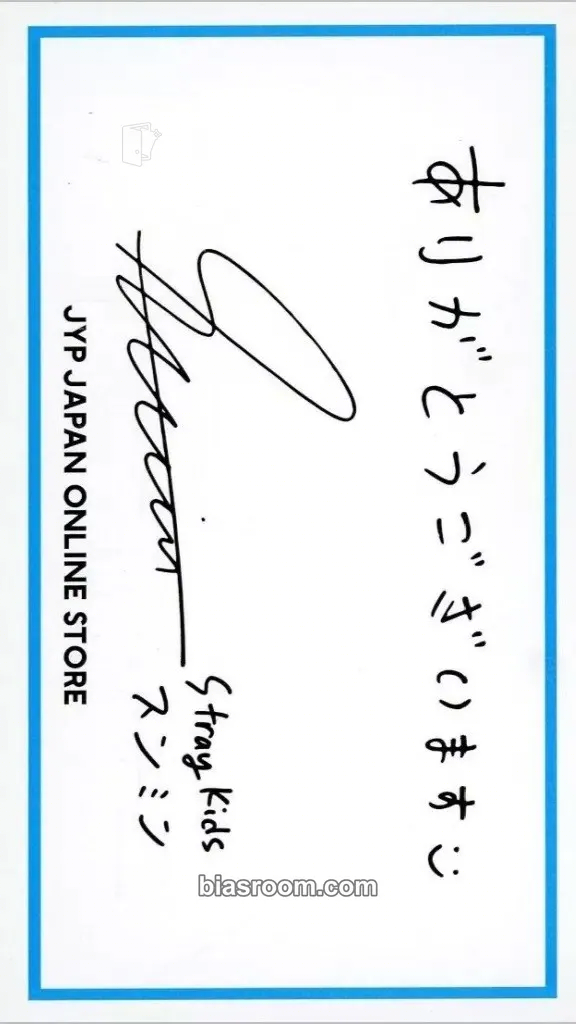 ありがとうございます:)
Stray Kids
スンミン
JYP JAPAN ONLINE STORE
biasroom.com